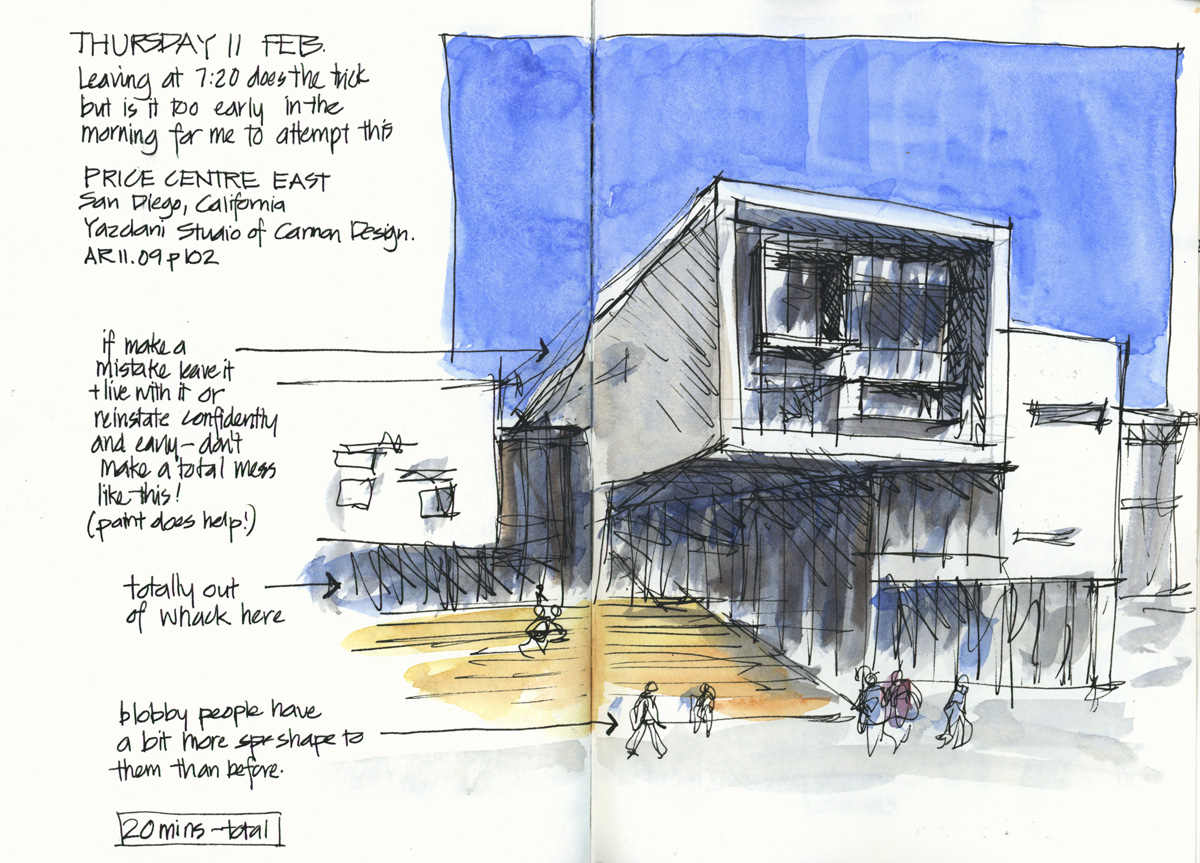 THURSDAY 11 FEB.
Leaving at 7:20 does the trick
but is it too early in the
morning for me to attempt this
PRICE CENTRE EAST
San Diego, California
Yazdani Studio of Cannon Design.
AR 11.09 p 102
if make a
mistake leave it
+ live with it or
reinstate confidently
and early - don't
make a total mess
like this!
(paint does help!)
totally out
of whack here
blobby people have
a bit more shape to
them than before.
20 mins - total